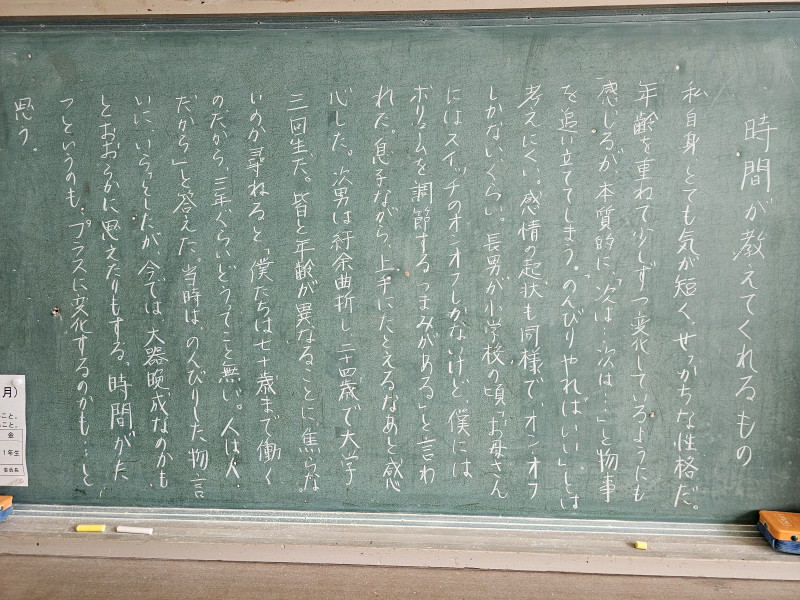 時間が教えてくれるもの
私自身、とても気が短く、せっかちな性格だ。
年齢を重ねて少しずつ変化しているようにも
感じるが、本質的に「次は…次は…」と物事
を追い立ててしまう。「のんびりやればいい」とは
考えにくい。感情の起伏も同様で、オン・オフ
しかないくらい。長男が小学校の頃「お母さん
にはスイッチのオンオフしかないけど、僕には
ボリュムを調節するつまみがある」と言わ
れた。息子ながら、上手にたとえるなあと感
心した。次男は紆余曲折し、二十四歳で大学
三回生だ。皆と年齢が異なることに、焦らな
いのか尋ねると、「僕たちは七十歳まで働く
のだから、三年ぐらいどうってこと無い。人は人
だから」と答えた。当時は、のんびりした物言
いに、いらっとしたが、今では、大器晩成なのかも
とおおらかに思えたりもする。時間がた
つというのも…プラスに変化するのかも…と
思う。
月）
こと。
こと。
会
1年生
委員長